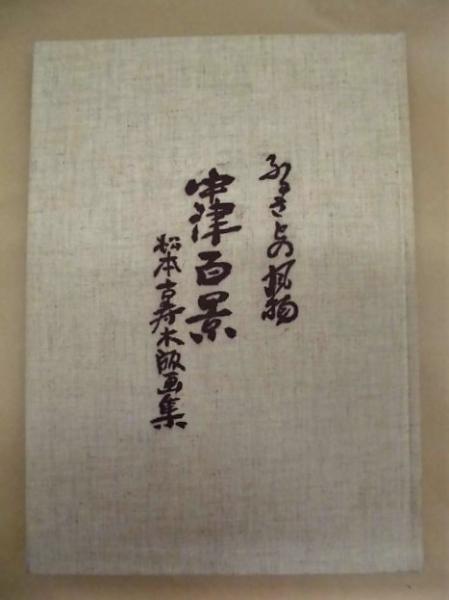 ふるさとの風物
中津百景
松本古寿木版画集